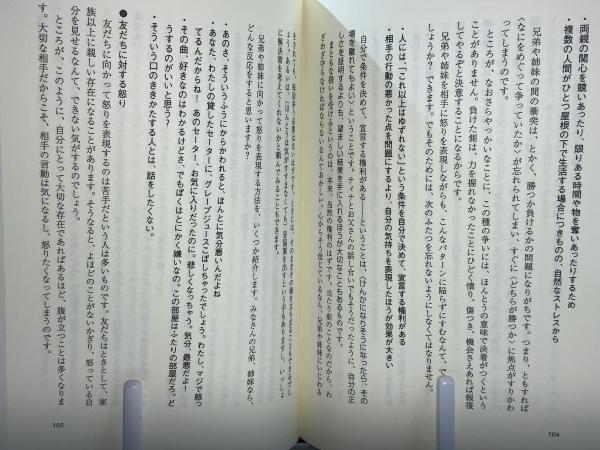 ・両親の関心を競いあったり、限りある時間や物を奪いあったりするため
・複数の人間がひとつ屋根の下で生活する場合につきものの、自然なストレスから
兄弟や姉妹の間の衝突は、とかく、勝つか負けるかの問題になりがちです。つまり、ともすれば
〈なにをめぐって争っていたか〉が忘れられてしまい、すぐに〈どちらが勝つか〉に焦点がすりかわ
ってしまうのです。
ところが、なおさらやっかいなことに、この種の争いには、ほんとうの意味で決着がつくという
ことがありません。負けた側は、力を握れなかったことにひどく憤り、傷つき、機会さえあれば報復
してやるぞと決意することになるからです。
兄弟や姉妹を相手に怒りを表現しながらも、こんなパターンに陥らずにすむなんて、で
しょうか？ できます。でもそのためには、次のふたつを忘れないようにしなくてはなりません。
・人には、「これ以上はゆずれない」という条件を自分で決めて、宣言する権利がある
・相手の行動の悪かった点を問題にするより、自分の気持ちを表現したほうが効果が大きい
自分で条件を決めて、宣言する権利がある――ということは、〈けんかになりそうになったら、その
場を離れてもよい〉ということです。ティナとお父さんの話し合いでもそうだったように、自分の正
しさを証明するよりも、望ましい結果を手に入れるほうが大切なこともあるものです。
まともな扱いを受けるというのは、本来、当然の権利のはずです。当たり前のことなのだから、わ
ざわざ守らなければならないなんておかしい。心からそう信じているなら、兄弟や姉妹にいじわる
104
兄弟や姉妹に向かって怒りを表現する方法を、いくつか紹介します。みなさんの兄弟、姉妹なら、
どんな反応をすると思いますか？
・あのさ、そういうふうにからかわれると、ほんとに気分悪いんだよね
・あなた、わたしの貸したセーターに、グレープジュースこぼしちゃったでしょう。わたし、マジで怒っ
てるんだからね！ あのセーター、お気に入りだったのに。悲しくなっちゃう。気分、最悪だよ！
・その曲、好きなのはわかるけどさ、でもぼくはとにかく嫌いなの。この部屋はふたりの部屋だろ。ど
うするのがいいと思う？
・そういう口のききかたする人とは、話をしたくない。
●友だちに対する怒り
友だちに向かって怒りを表現するのは苦手だという人は多いものです。友だちはときとして、家
族以上に親しい存在になることがあります。そうなると、よほどのことがないかぎり、怒っている自
分を見せるなんて、できない気がするのでしょう。
ところが、このように、自分にとって大切な存在であればあるほど、腹が立つことは多くなりま
す。大切な相手だからこそ、相手の言動は気になるし、怒りたくなってしまうのです。
105